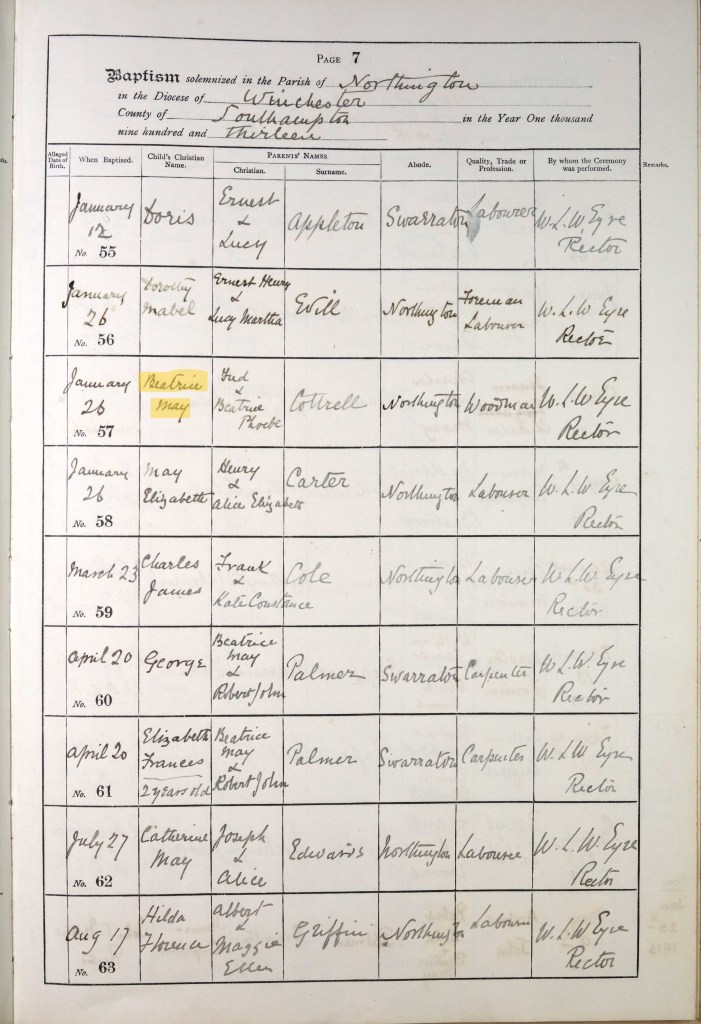 PAGE 7
Baptism solemnized in the Parish of Northington
in the Diocese of Winchester
County of Southampton in the Year One thousand
nine hundred and thirteen
Alleged Date of Birth. When Baptised. Child's Christian Name. PARENTS' NAMES Christian. Surname. Abode. Quality, Trade or Profession. By whom the Ceremony was performed. Remarks.
January 12 No. 55 Doris Ernest & Lucy Appleton Swarraton Labourer W. L. W. Eyre Rector
January 26 No. 56 Dorothy Mabel Ernest Henry & Lucy Martha Evill Northington Foreman Labourer W. L. W Eyre Rector
January 26 No. 57 Beatrice May Fred & Beatrice Phoebe Cottrell Northington Woodman W. L. W Eyre Rector
January 26 No. 58 May Elizabeth Henry & Alice Elizabeth Carter Northington Labourer W. L. W. Eyre Rector
March 23 No. 59 Charles James Frank & Kate Constance Cole Northington Labourer W. L. W. Eyre Rector
April 20 No. 60 George Beatrice May & Robert John Palmer Swarraton Carpenter W. L. W. Eyre Rector
April 20 No. 61 Elizabeth Frances 2 years old Beatrice May & Robert John Palmer Swarraton Carpenter W. L. W Eyre Rector
July 27 No. 62 Catherine May Joseph & Alice Edwards Northington Labourer W. L. W. Eyre Rector
Aug 17 No. 63 Hilda Florence Albert & Maggie Ellen Griffin Northington Labourer W. L. W. Eyre Rector